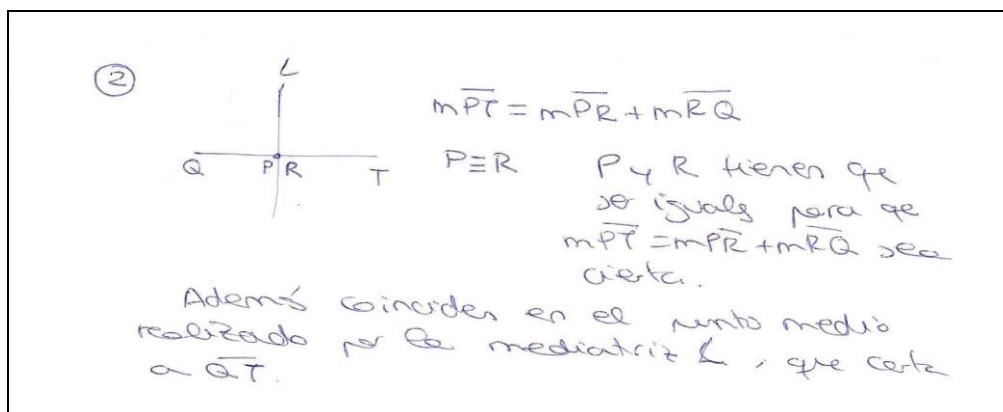 2
L
Q P R T
mPT = mPR + mRQ
P≡R P y R tienen que
ser iguals para qe
mPT = mPR + mRQ sea
cierta.
Ademś coinciden en el punto medio
realizado por la mediatriz L, que corta
a QT.